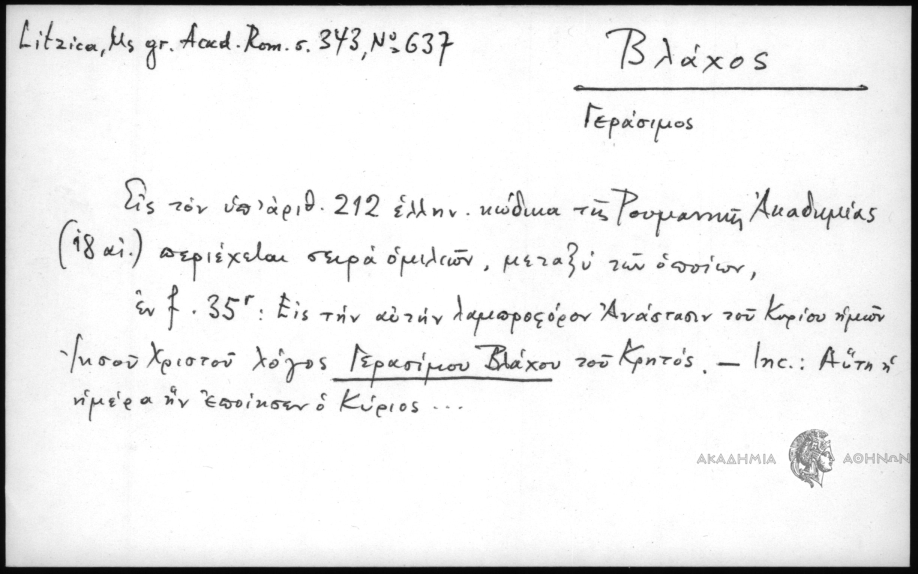 Litzica, Ms gr. Acad. Rom. σ. 343, Nº 637
Βλάχος
Γεράσιμος
Εἰς τὸν ὑπ' ἀριθ. 212 ἑλλην. κώδικα τῆς Ρουμανικῆς Ἀκαδημίας
(18 αἰ.) περιέχεται σειρὰ ὁμιλιῶν, μεταξὺ τῶν ὁποίων,
ἐν f. 35r: Εἰς τὴν αὐτὴν λαμπροφόρον Ἀνάστασιν τοῦ Κυρίου ἡμῶν
Ἰησοῦ Χριστοῦ λόγος Γερασίμου Βλάχου τοῦ Κρητός. — Inc.: Αὕτη ἡ
ἡμέρα ἣν ἐποίησεν ὁ Κύριος ...
ΑΚΑΔΗΜΙΑ ΑΘΗΝΩΝ